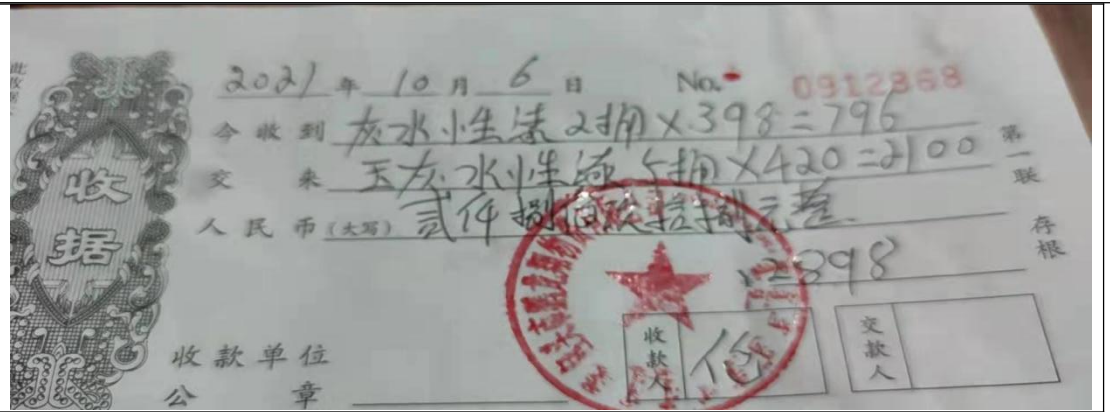 收据
2021年10月6日 No. 0912868
今收到 灰水性漆2捅×398=796
交来 玉灰水性漆5捅×420=2100
人民币(大写) 贰仟捌佰玖拾捌元整
2898
收款单位
公章
收款人
交款人
第一联
存根